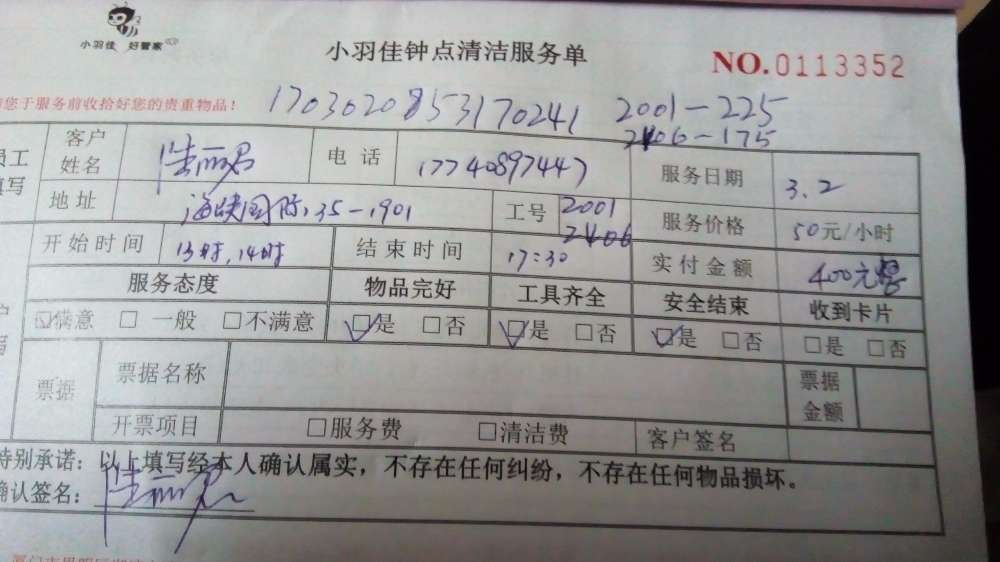 小羽佳 好管家
小羽佳钟点清洁服务单
NO.0113352
您于服务前收拾好您的贵重物品！
1703020853170241 2001-225
2406-175
员工
填写
客户姓名 电话 17740897447 服务日期 3.2
地址 海峡国际,35-1901 工号 2001 2406 服务价格 50元/小时
开始时间 13时,14时 结束时间 17:30 实付金额 400元
服务态度 物品完好 工具齐全 安全结束 收到卡片
☑满意 □一般 □不满意 ☑是 □否 ☑是 □否 ☑是 □否 □是 □否
票据 票据名称 票据金额
开票项目 □服务费 □清洁费 客户签名
特别承诺：以上填写经本人确认属实，不存在任何纠纷，不存在任何物品损坏。
确认签名：